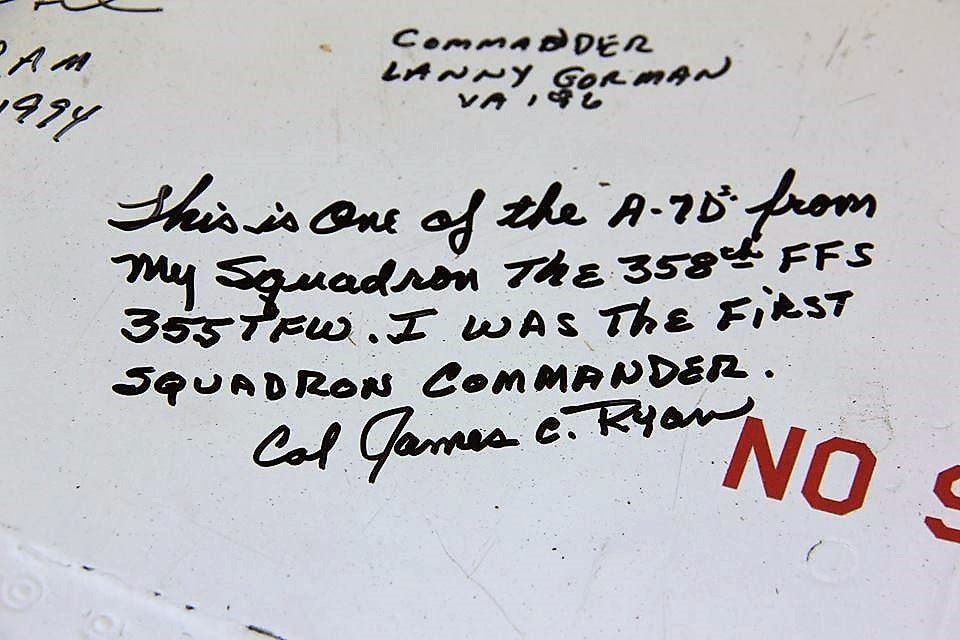 AM
1994
COMMANDER
LANNY GORMAN
VA 196
This is One of the A-7D's from
My Squadron THE 358th FFS
355 TFW. I WAS THE FIRST
SQUADRON COMMANDER.
Col James C. Ryan
NO S